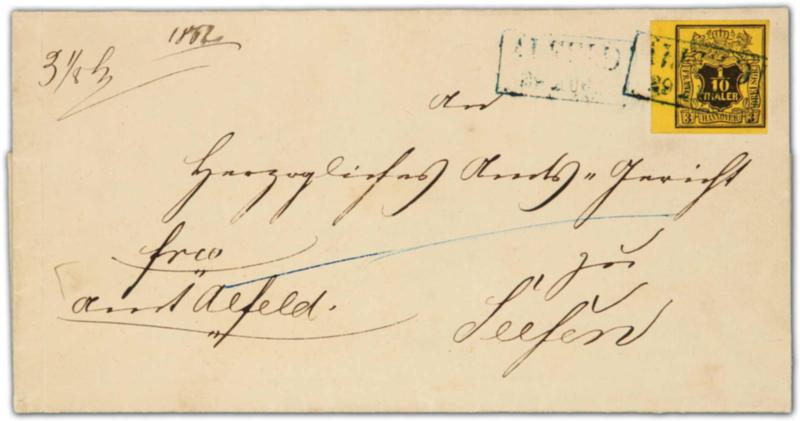 1852
3 1/2
ALFELD
29 AUG
1/10
THALER
3 HANNOVER 3
An
Herzogliches Amts-Gericht
frco
zu
Amt Alfeld.
Seesen